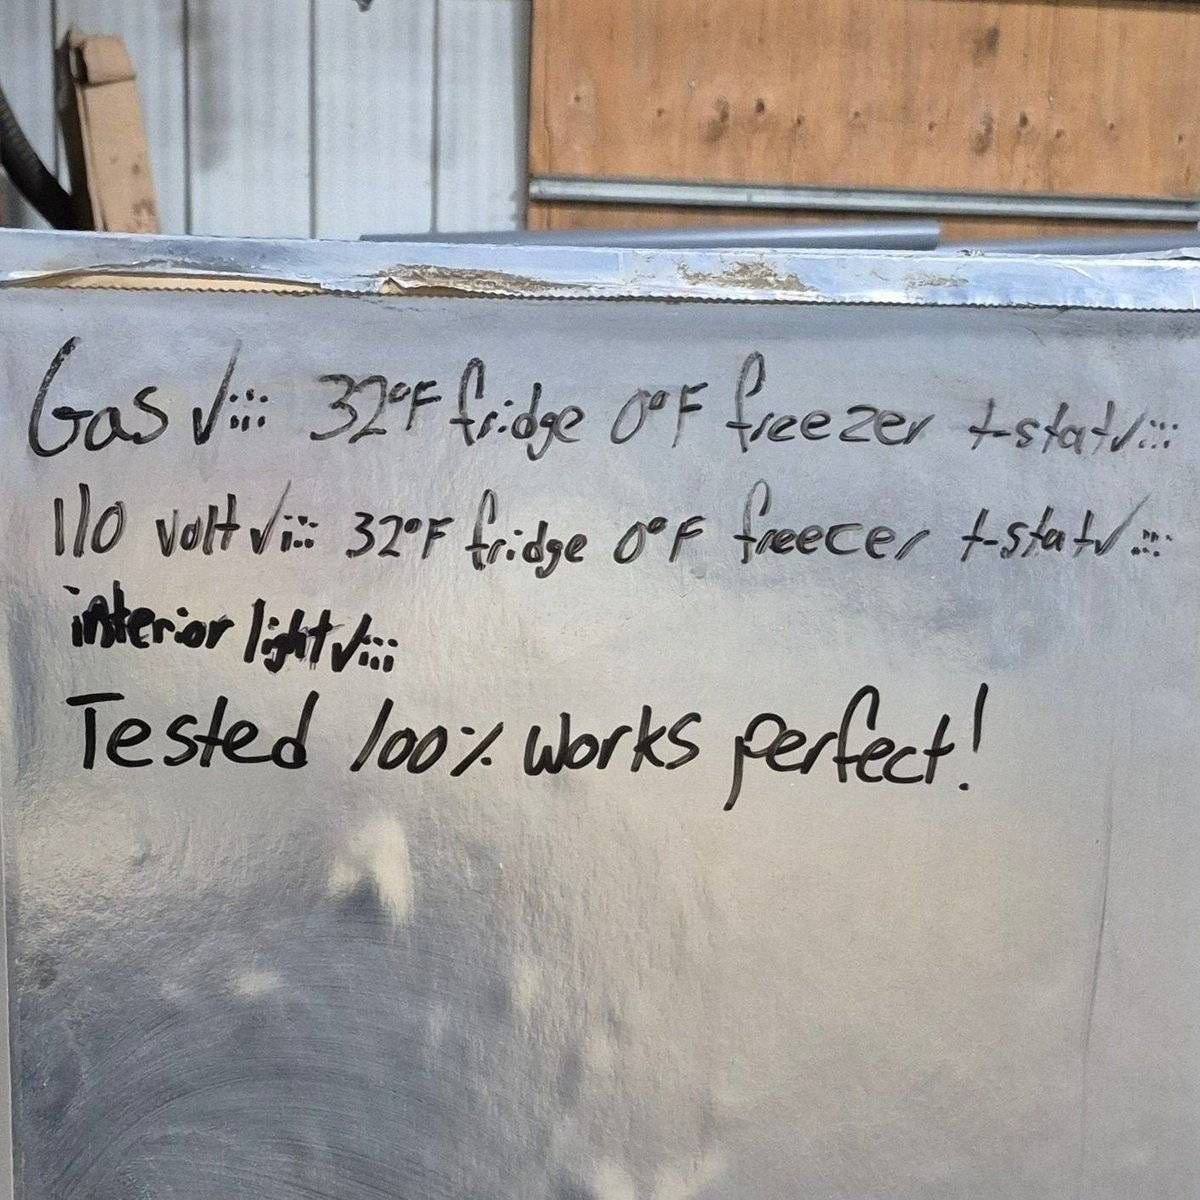 Gas √::: 32°F fridge 0°F freezer t-stat√:::
110 volt √::: 32°F fridge 0°F freecer t-stat√:::
interior light√:::
Tested 100% works perfect!